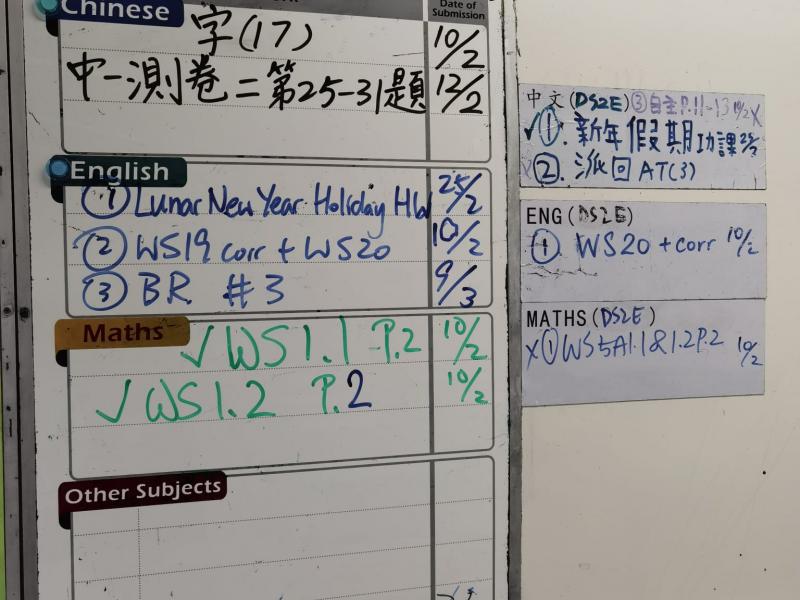 Chinese
Date of Submission
字(17)
10/2
中一測卷二第25-31題
12/2
English
① Lunar New Year Holiday HW
25/2
② WS19 corr + WS20
10/2
③ BR #3
9/3
Maths
✓ WS1.1 P.2
10/2
✓ WS1.2 P.2
10/2
Other Subjects
中文(DS2E) ③自主P.11-13 10/2 X
✓①. 新年假期功課 25/2
②. 派回AT(3)
ENG(DS2E)
①. WS20 + corr 10/2
MATHS(DS2E)
X① WS5A1.1&1.2P.2 10/2